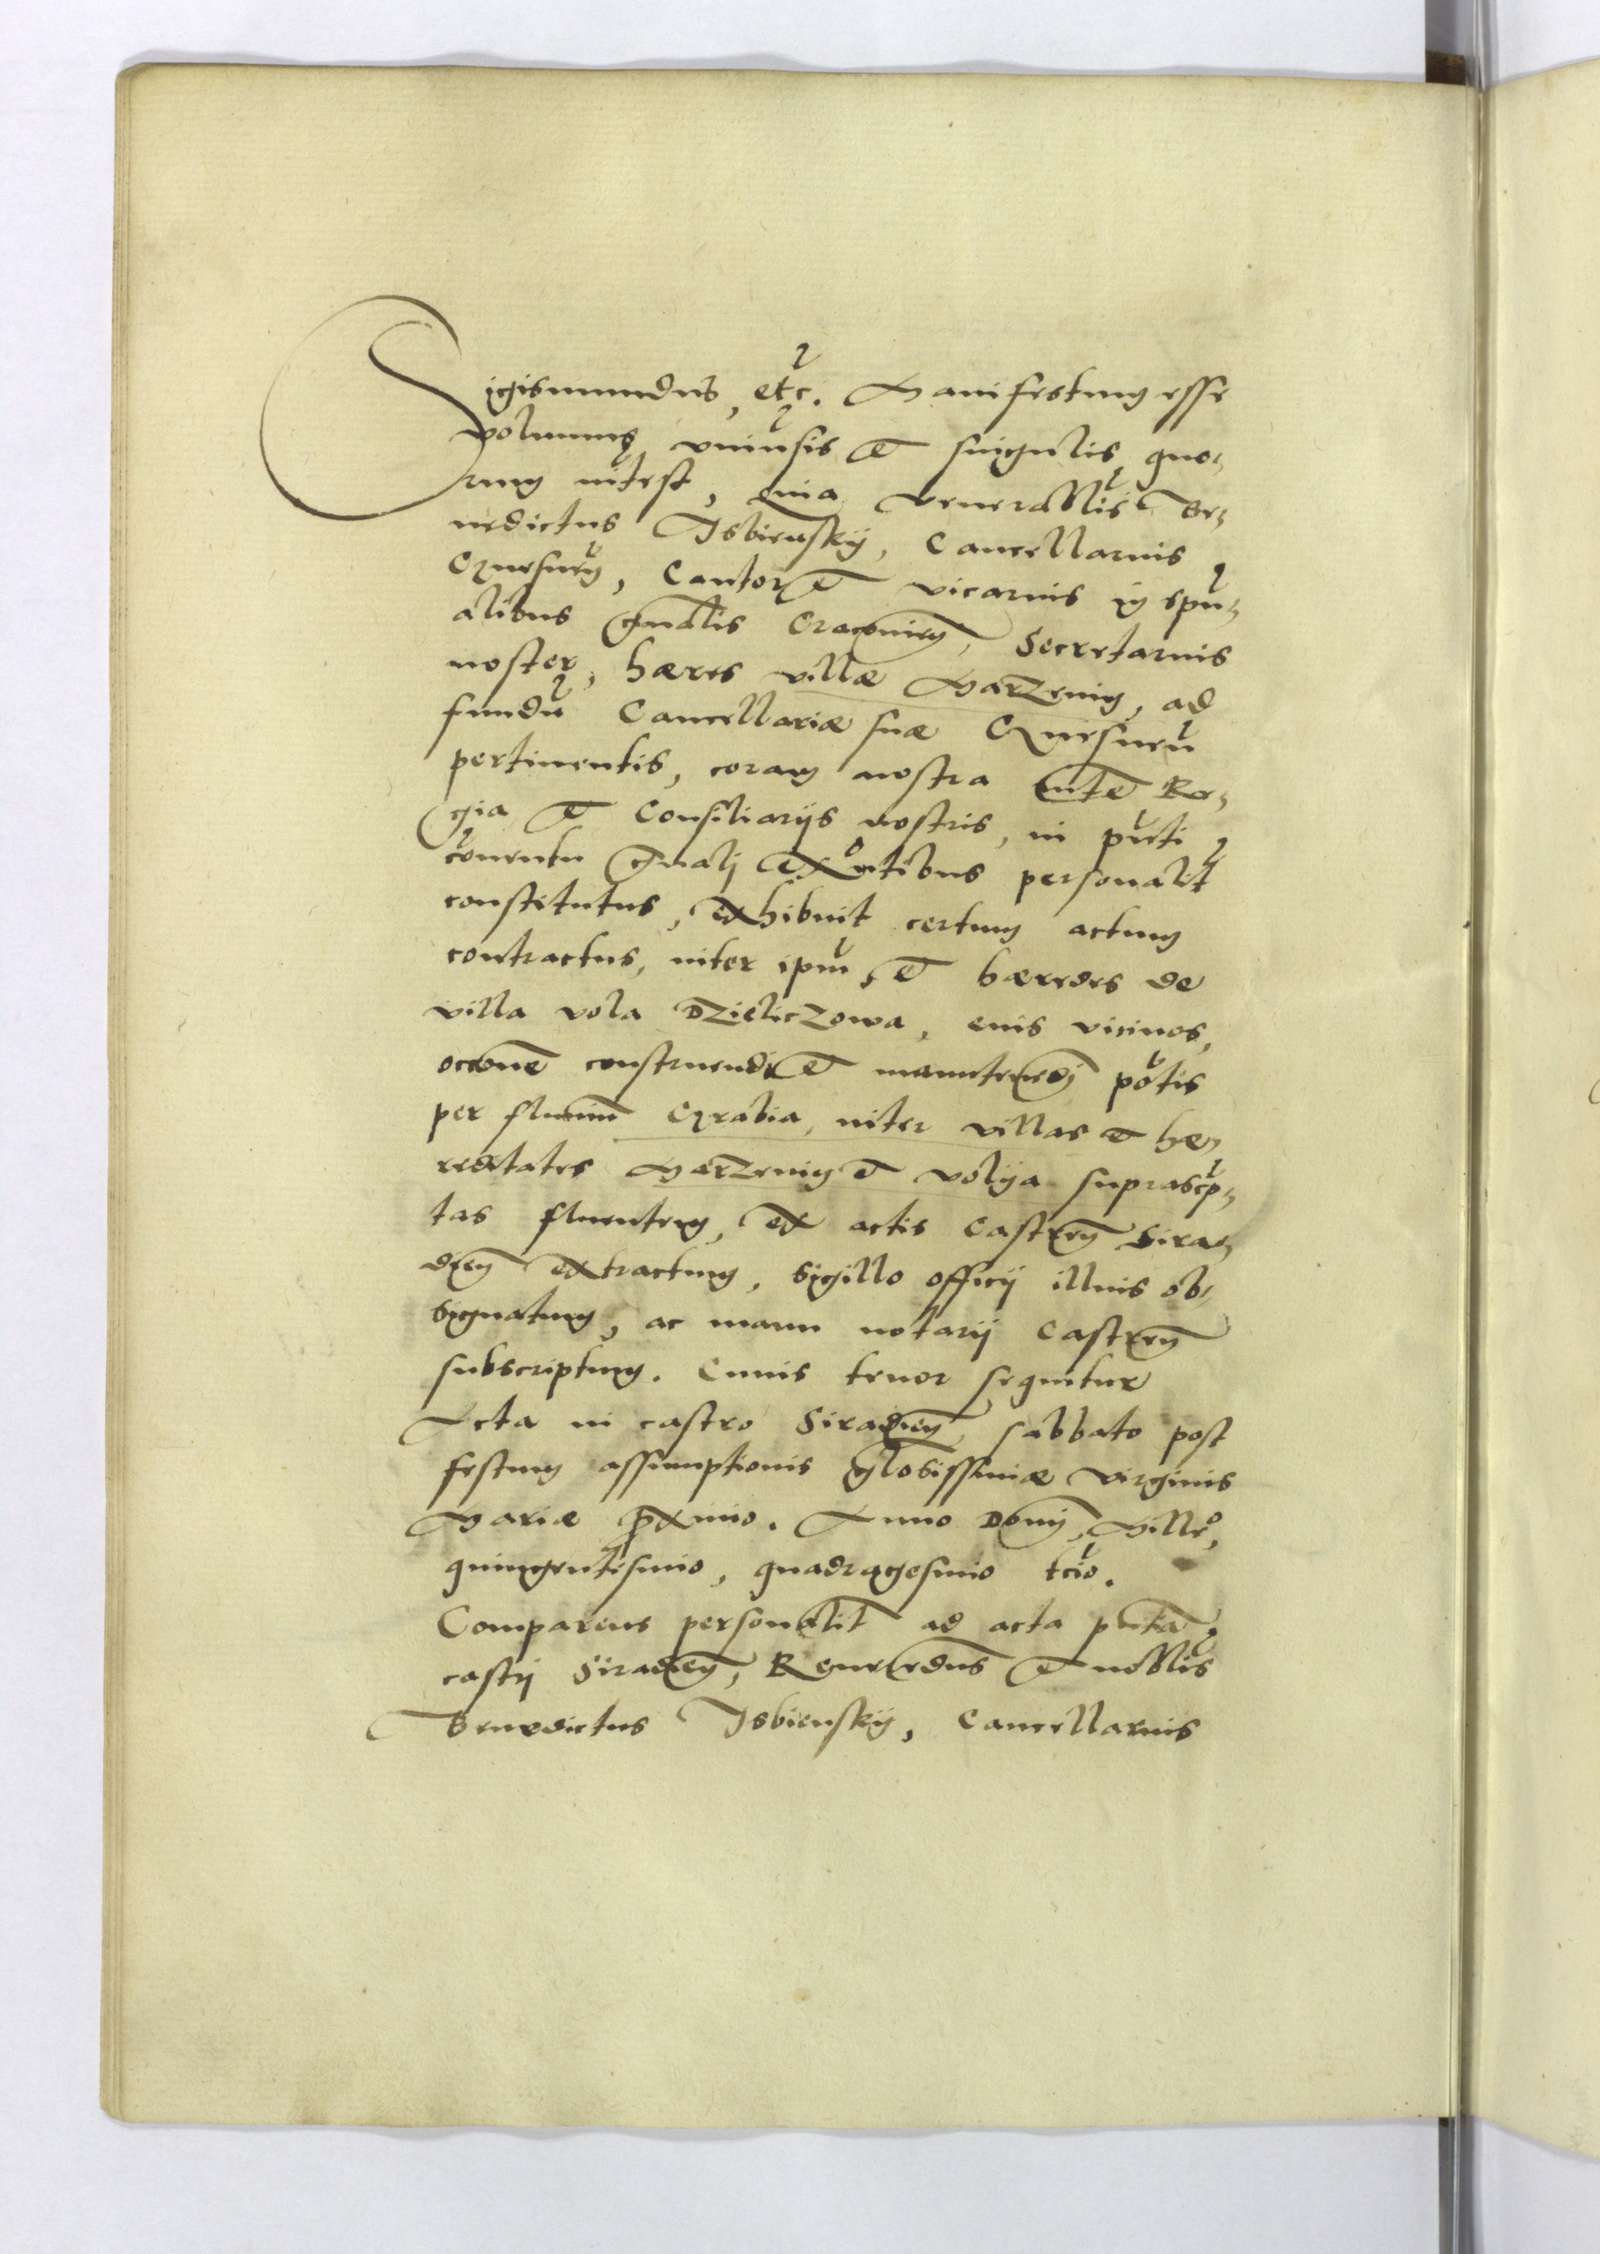 Sigismundus, etc. Manifestum esse
volumus, vniũsis et singulis, quo-
rum nũtest, quia venerabĩlis Be-
nedictus Isbiensky, Cancellarius
Gznesneñ, Cantor et vicarius in spũ-
alibus gñalis Cracovieñ, Secretarius
noster, hæres villæ Marzenin, ad
fundũ Cancellariæ suæ Gznesneñ
pertinentis, coram nostra Mte Re-
gia et Consiliarijs nostris, in pñti
cõnventu gñali exñtibus personalr
constitutus, exhibuit certum actum
contractus, inter ipm̃, et hæredes de
villa vola Dzieliczowa, eius vicinos,
occõne construendi et manutenedj põtis
per fluuiũ Grabia, inter villas et hæ-
reditates Marzenin et volya suprascp̃-
tas fluentem, ex actis Castreñ Sira-
dieñ extractum, sigillo officij illius ob-
signatum, ac manu notarij Castreñ
subscriptum. Cuius tenor sequitur
Acta in castro Siradieñ, sabbato post
festum assumptionis glosissimæ virginis
Mariæ p̃ximo. Anno Domj, Millẽo,
quingentesimo, quadragesimo tcĩo.
Comparens personalit̃ ad acta pñtia
castrj Siradieñ, Reuerẽdus et nobĩlis
Benedictus Isbiensky, Cancellarius